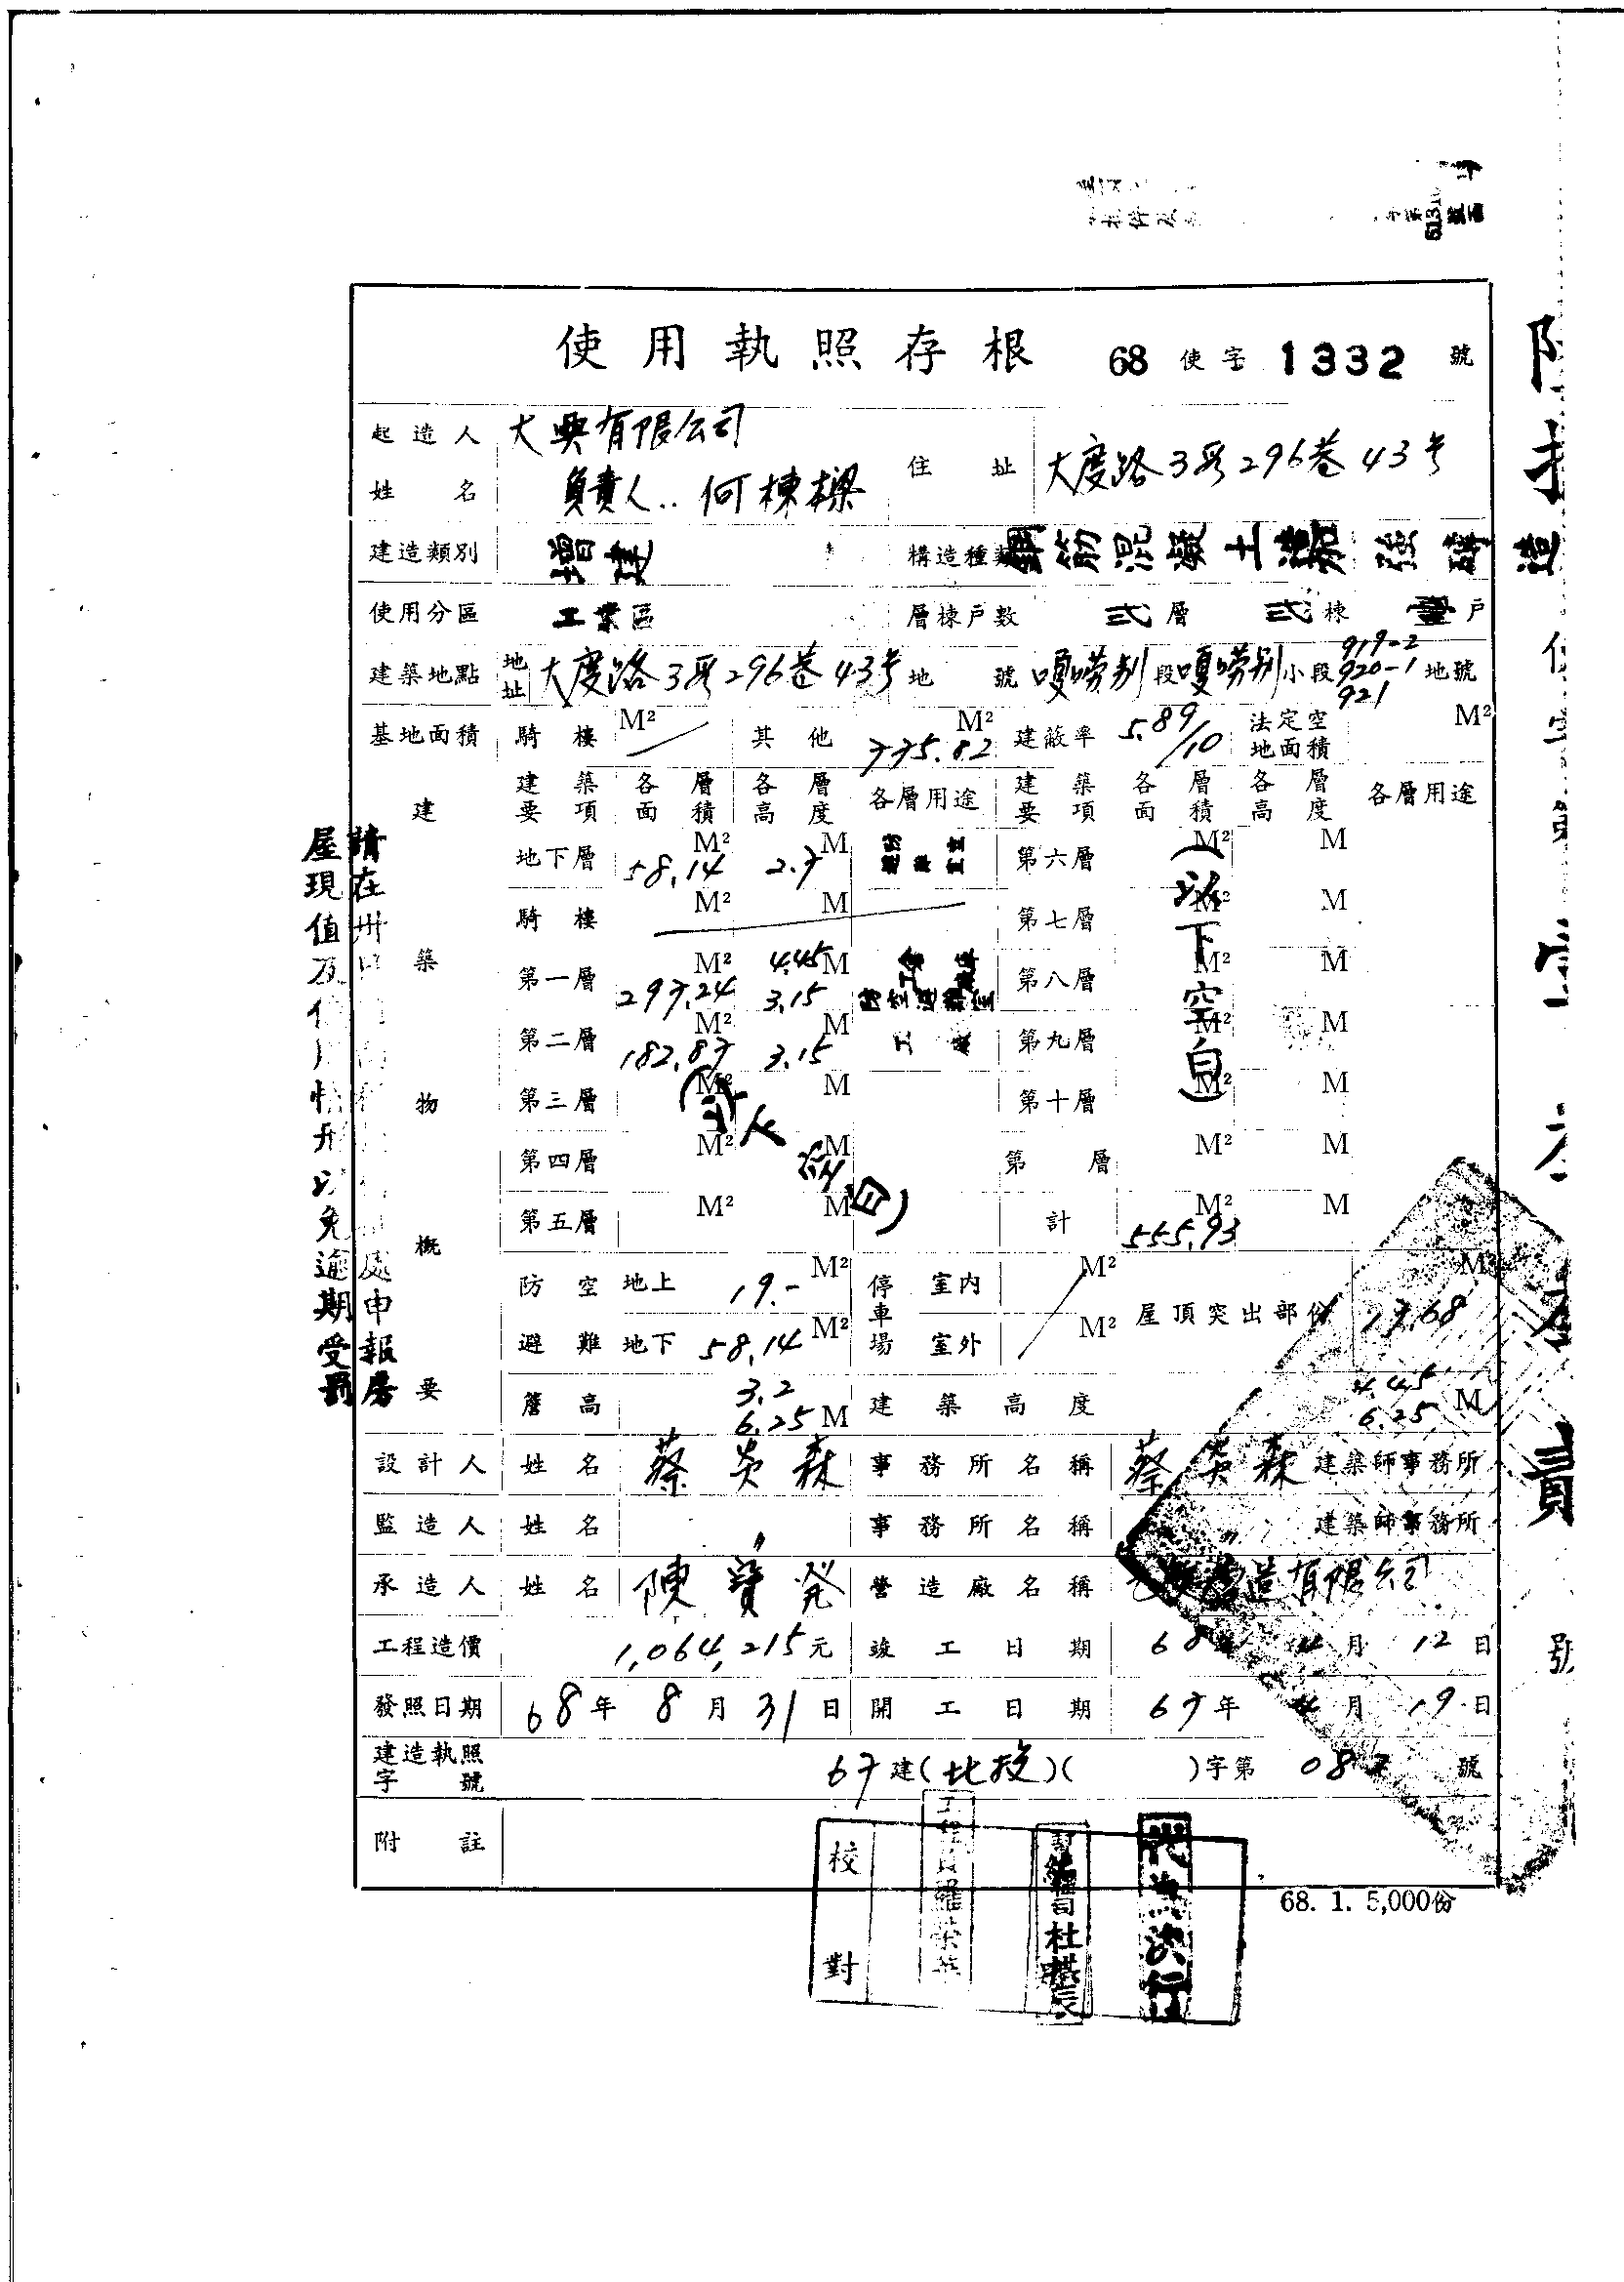 使用執照存根 68 使字 1332 號
起造人姓名 大興有限公司
負責人..何棟樑
住址 大度路3段296巷43号
建造類別 增建 構造種類 鋼筋混凝土造加強磚造
使用分區 工業區 層棟戶數 弍層 弍棟 壹戶
建築地點 地址 大度路3段296巷43号 地號 嗄嘮别段嗄嘮别小段 919-2 920-1 921 地號
基地面積 騎樓 M² 其他 775.82 M² 建蔽率 5.89/10 法定空地面積 M²
建築物概要
建築要項 各層面積 各層高度 各層用途 建築要項 各層面積 各層高度 各層用途
地下層 58.14 M² 2.7 M 第六層 M² M
騎樓 M² M 第七層 M² M
第一層 297.24 M² 4.45 3.15 M 第八層 M² M
第二層 182.87 M² 3.15 M 工廠 第九層 M² M
第三層 M² M 第十層 M² M
第四層 M² M 第 層 M² M
第五層 M² M 計 555.93 M² M
(以下空白)
(以下空白)
防空避難 地上 19.- M² 停車場 室內 M² 屋頂突出部份 17.68 M²
地下 58.14 M² 室外 M²
簷高 3.2 6.25 M 建築高度 4.45 6.25 M
設計人 姓名 蔡炎森 事務所名稱 蔡炎森 建築師事務所
監造人 姓名 〃 事務所名稱 〃 建築師事務所
承造人 姓名 陳寶発 營造廠名稱 營造有限公司
工程造價 1,064,215元 竣工日期 68年4月12日
發照日期 68年8月31日 開工日期 67年4月19日
建造執照字號 67建(北投)( )字第 08 號
附註
68. 1. 5,000份
校對
代為決行
請在 處申報房
屋現值及 情形以免逾期受罰